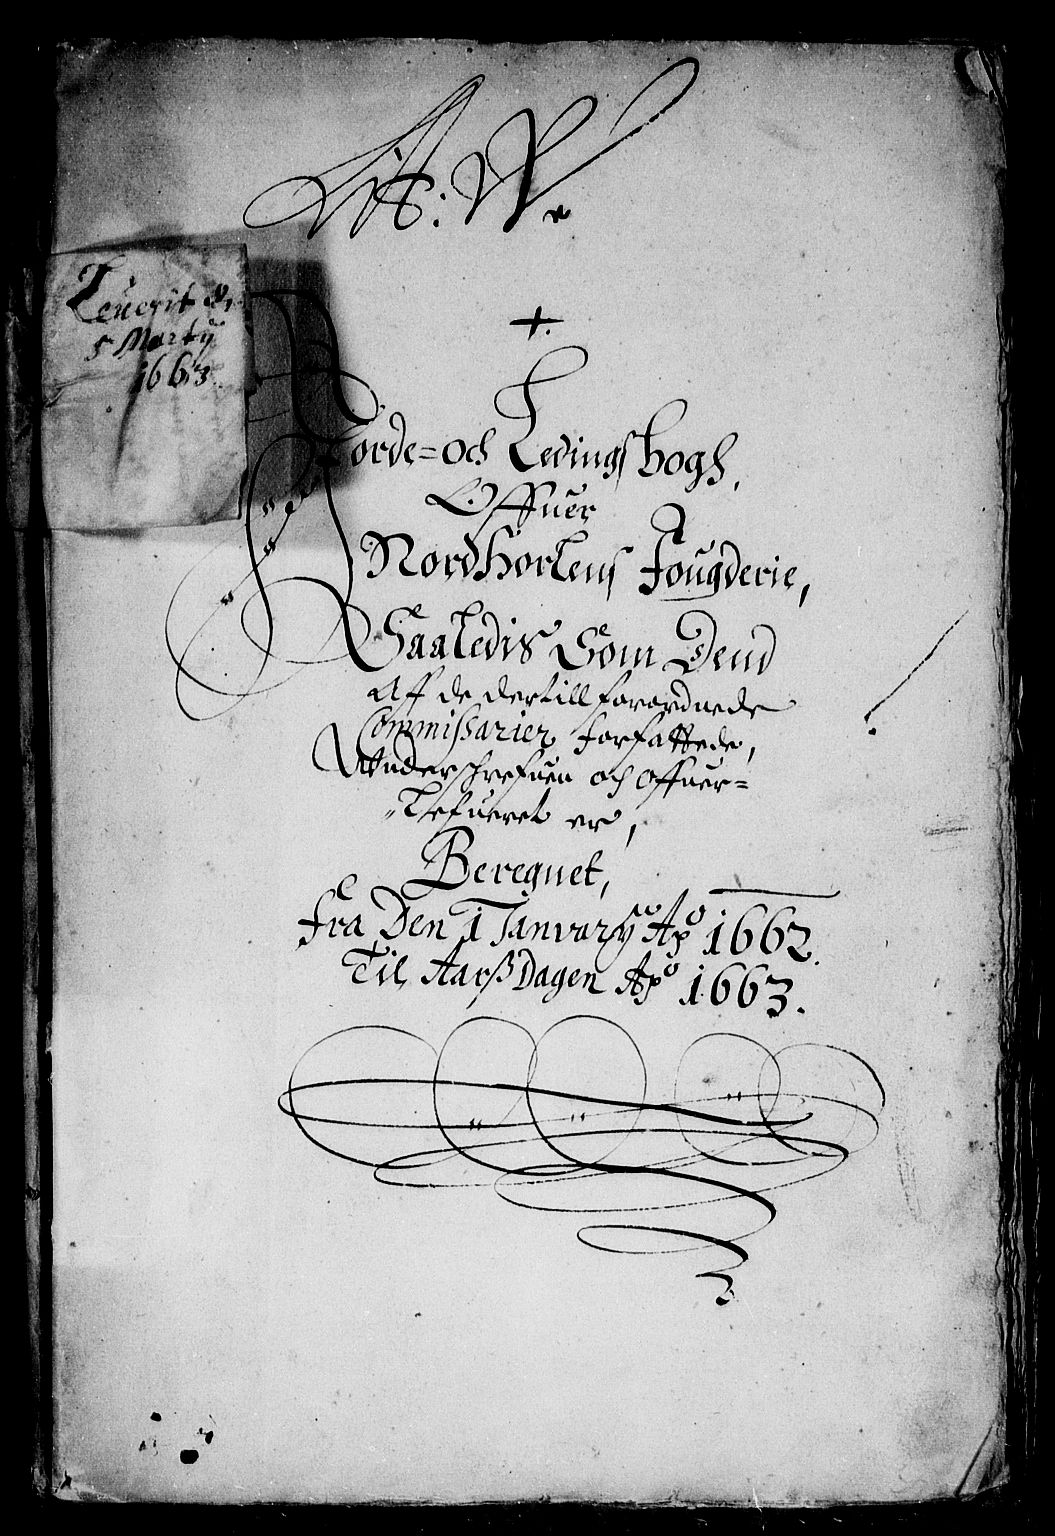 Lit: W.
Leuerit d.
5 Martij
1663.
+.
Jorde= och Ledings bogh,
Offuer
Nordhorlens Fougderie,
Saaledis Som Dend
Aff de dertill forordnede
Commissarier forfattede,
Underschrefuen och offuer=
"Lefueret er,
Beregnet,
fra Den 1 Janvarij Aō 1662.
Til AarßDagen Aō 1663.